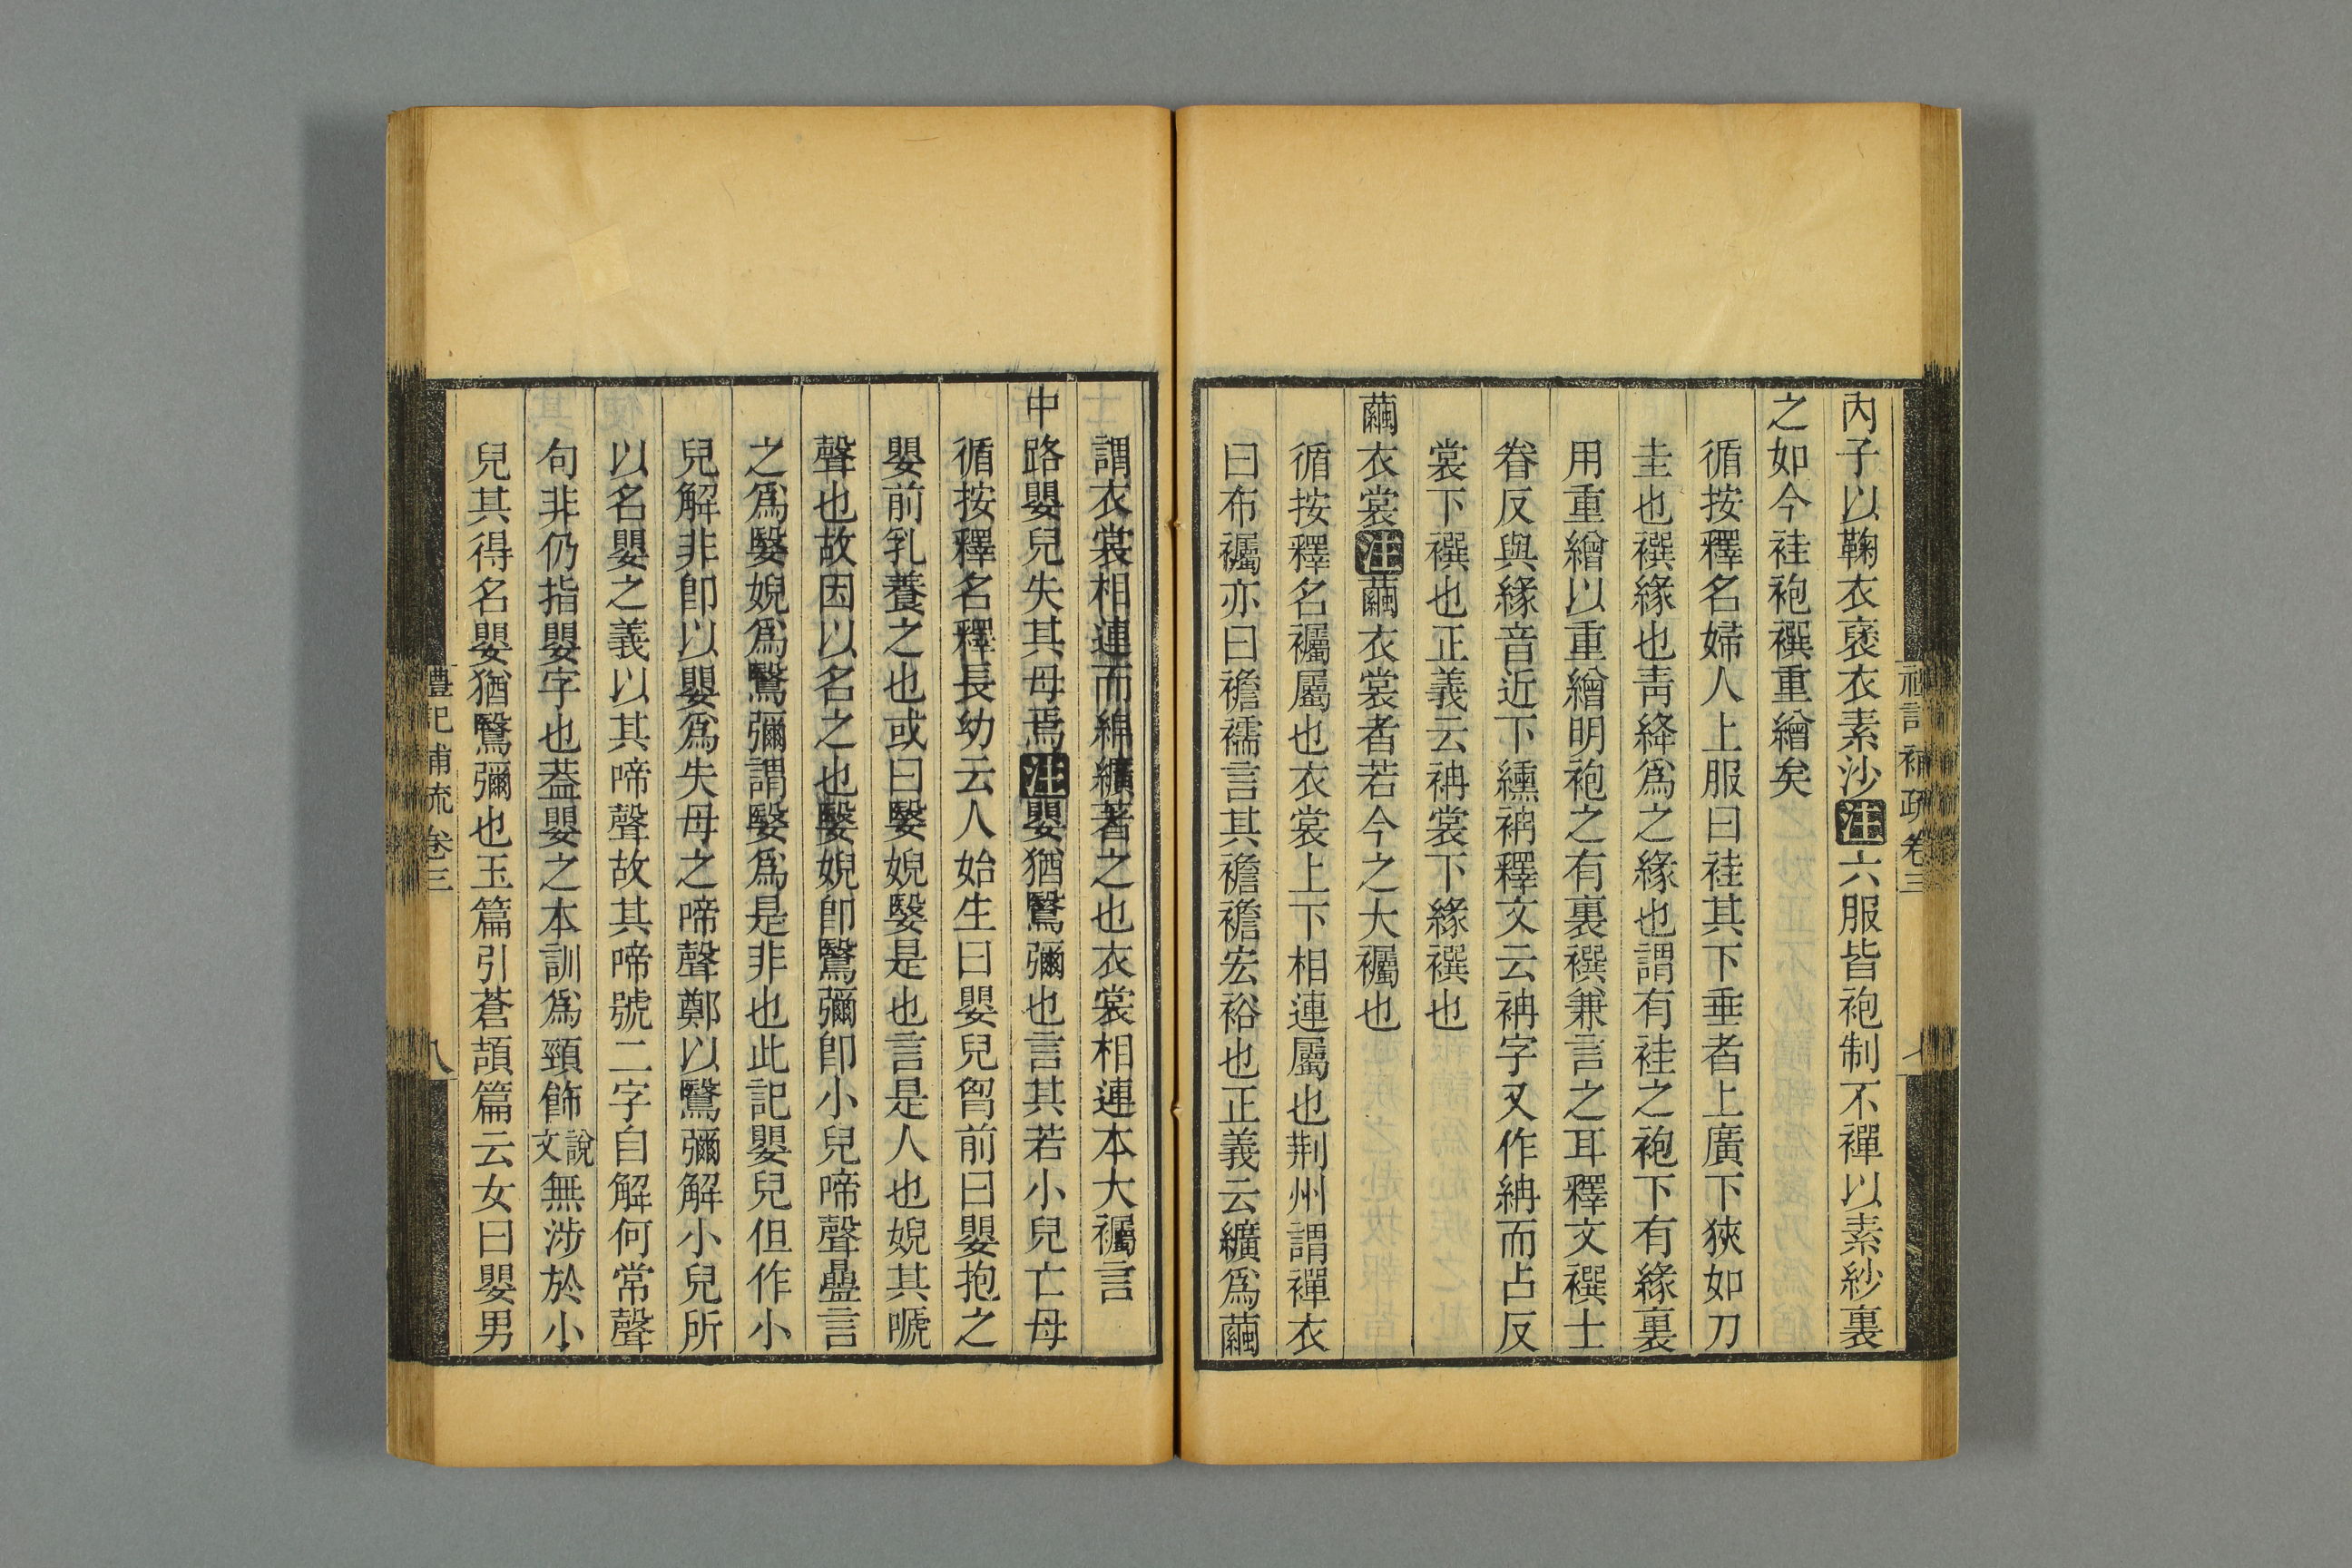 禮記補疏卷三
內子以鞠衣褒衣素沙注六服皆袍制不禪以素紗裏
之如今袿袍襈重繒矣
循按釋名婦人上服曰袿其下垂者上廣下狹如刀
圭也襈緣也靑絳爲之緣也謂有袿之袍下有緣裏
用重繒以重繒明袍之有裏襈兼言之耳釋文襈士
眷反與緣音近下纁袡釋文云袡字又作䋐而占反
裳下襈也正義云袡裳下緣襈也
繭衣裳注繭衣裳者若今之大襡也
循按釋名襡屬也衣裳上下相連屬也荆州謂禪衣
曰布襡亦曰襜襦言其襜襜宏裕也正義云纊爲繭
謂衣裳相連而綿纊著之也衣裳相連本大襡言
中路嬰兒失其母焉注嬰猶鷖彌也言其若小兒亡母
循按釋名釋長幼云人始生曰嬰兒胷前曰嬰抱之
嬰前乳養之也或曰嫛婗嫛是也言是人也婗其嗁
聲也故因以名之也嫛婗卽鷖彌卽小兒啼聲曡言
之爲嫛婗爲鷖彌謂嫛爲是非也此記嬰兒但作小
兒解非卽以嬰爲失母之啼聲鄭以鷖彌解小兒所
以名嬰之義以其啼聲故其啼號二字自解何常聲
句非仍指嬰字也葢嬰之本訓爲頸飾說文無涉於小
兒其得名嬰猶鷖彌也玉篇引蒼頡篇云女曰嬰男
禮記補疏卷三
八